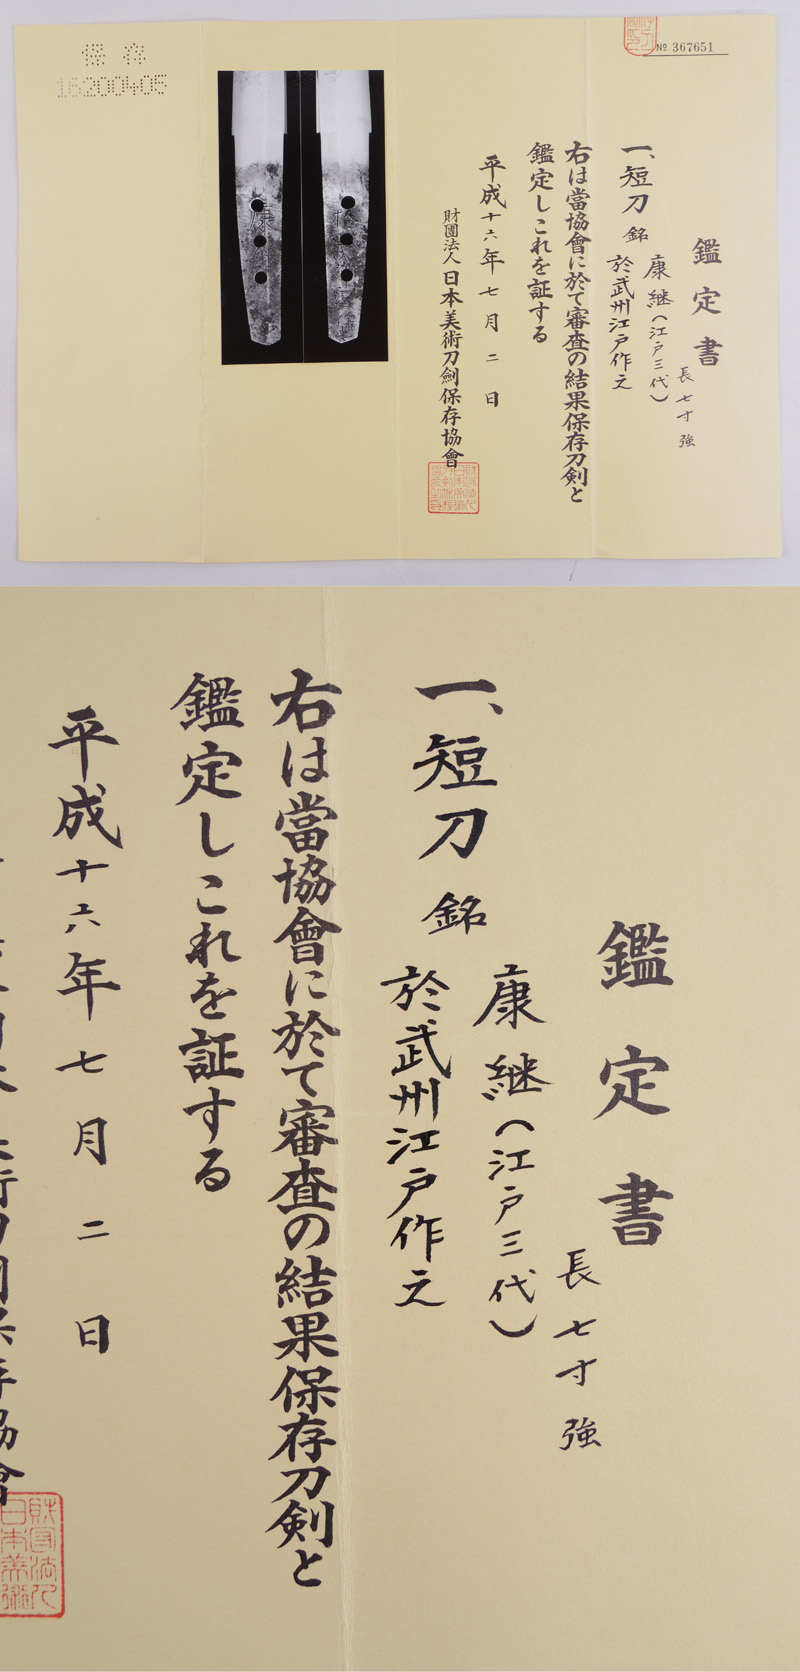 保存
16200405
№ 367651
鑑定書
長七寸強
一、短刀 銘 康継(江戸三代)
於武州江戸作之
右は當協會に於て審査の結果保存刀剣と
鑑定しこれを証する
平成十六年七月二日
財團法人 日本美術刀劍保存協會
鑑定書
長七寸強
一、短刀 銘 康継(江戸三代)
於武州江戸作之
右は當協會に於て審査の結果保存刀剣と
鑑定しこれを証する
平成十六年七月二日